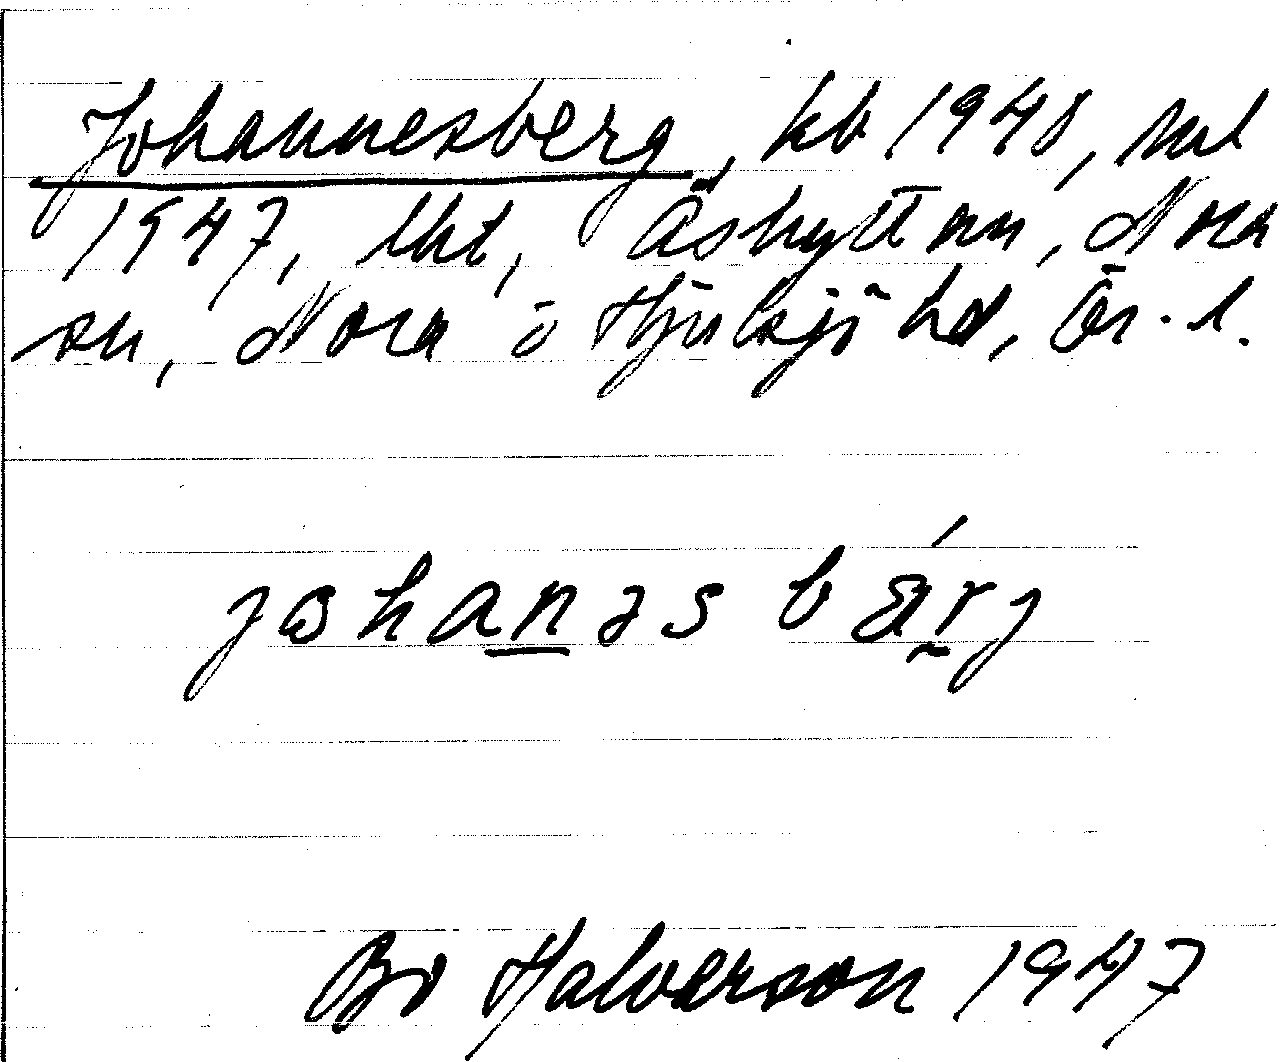 Johannesberg, kb 1948, ml
1947, lht, Åshyttan, Nora
sn, Nora o Hjulsjö hd, Ör. l.
johanəs bärj
Bo Halvarson 1947